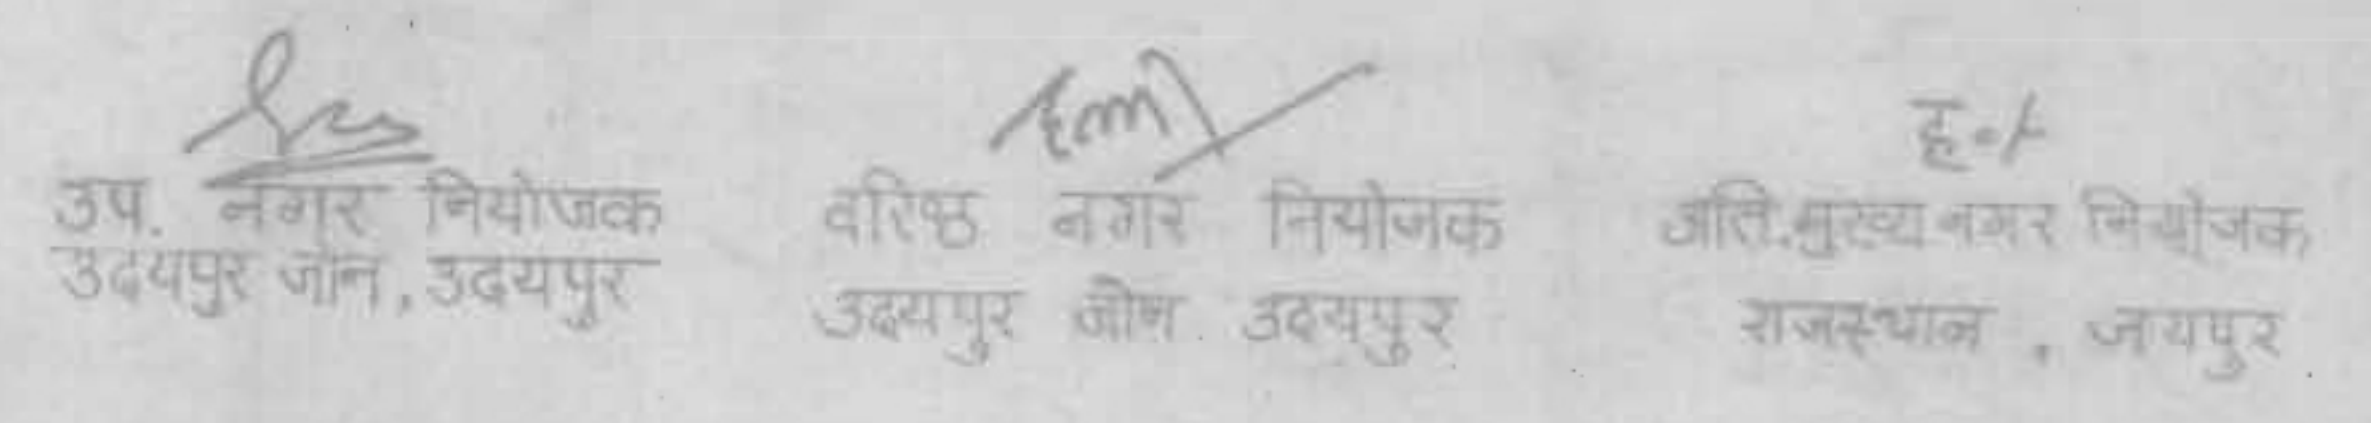 ह०/-
उप. नगर नियोजक
उदयपुर जोन, उदयपुर
वरिष्ठ नगर नियोजक
उदयपुर जोन उदयपुर
अति.मुख्य नगर नियोजक
राजस्थान, जयपुर